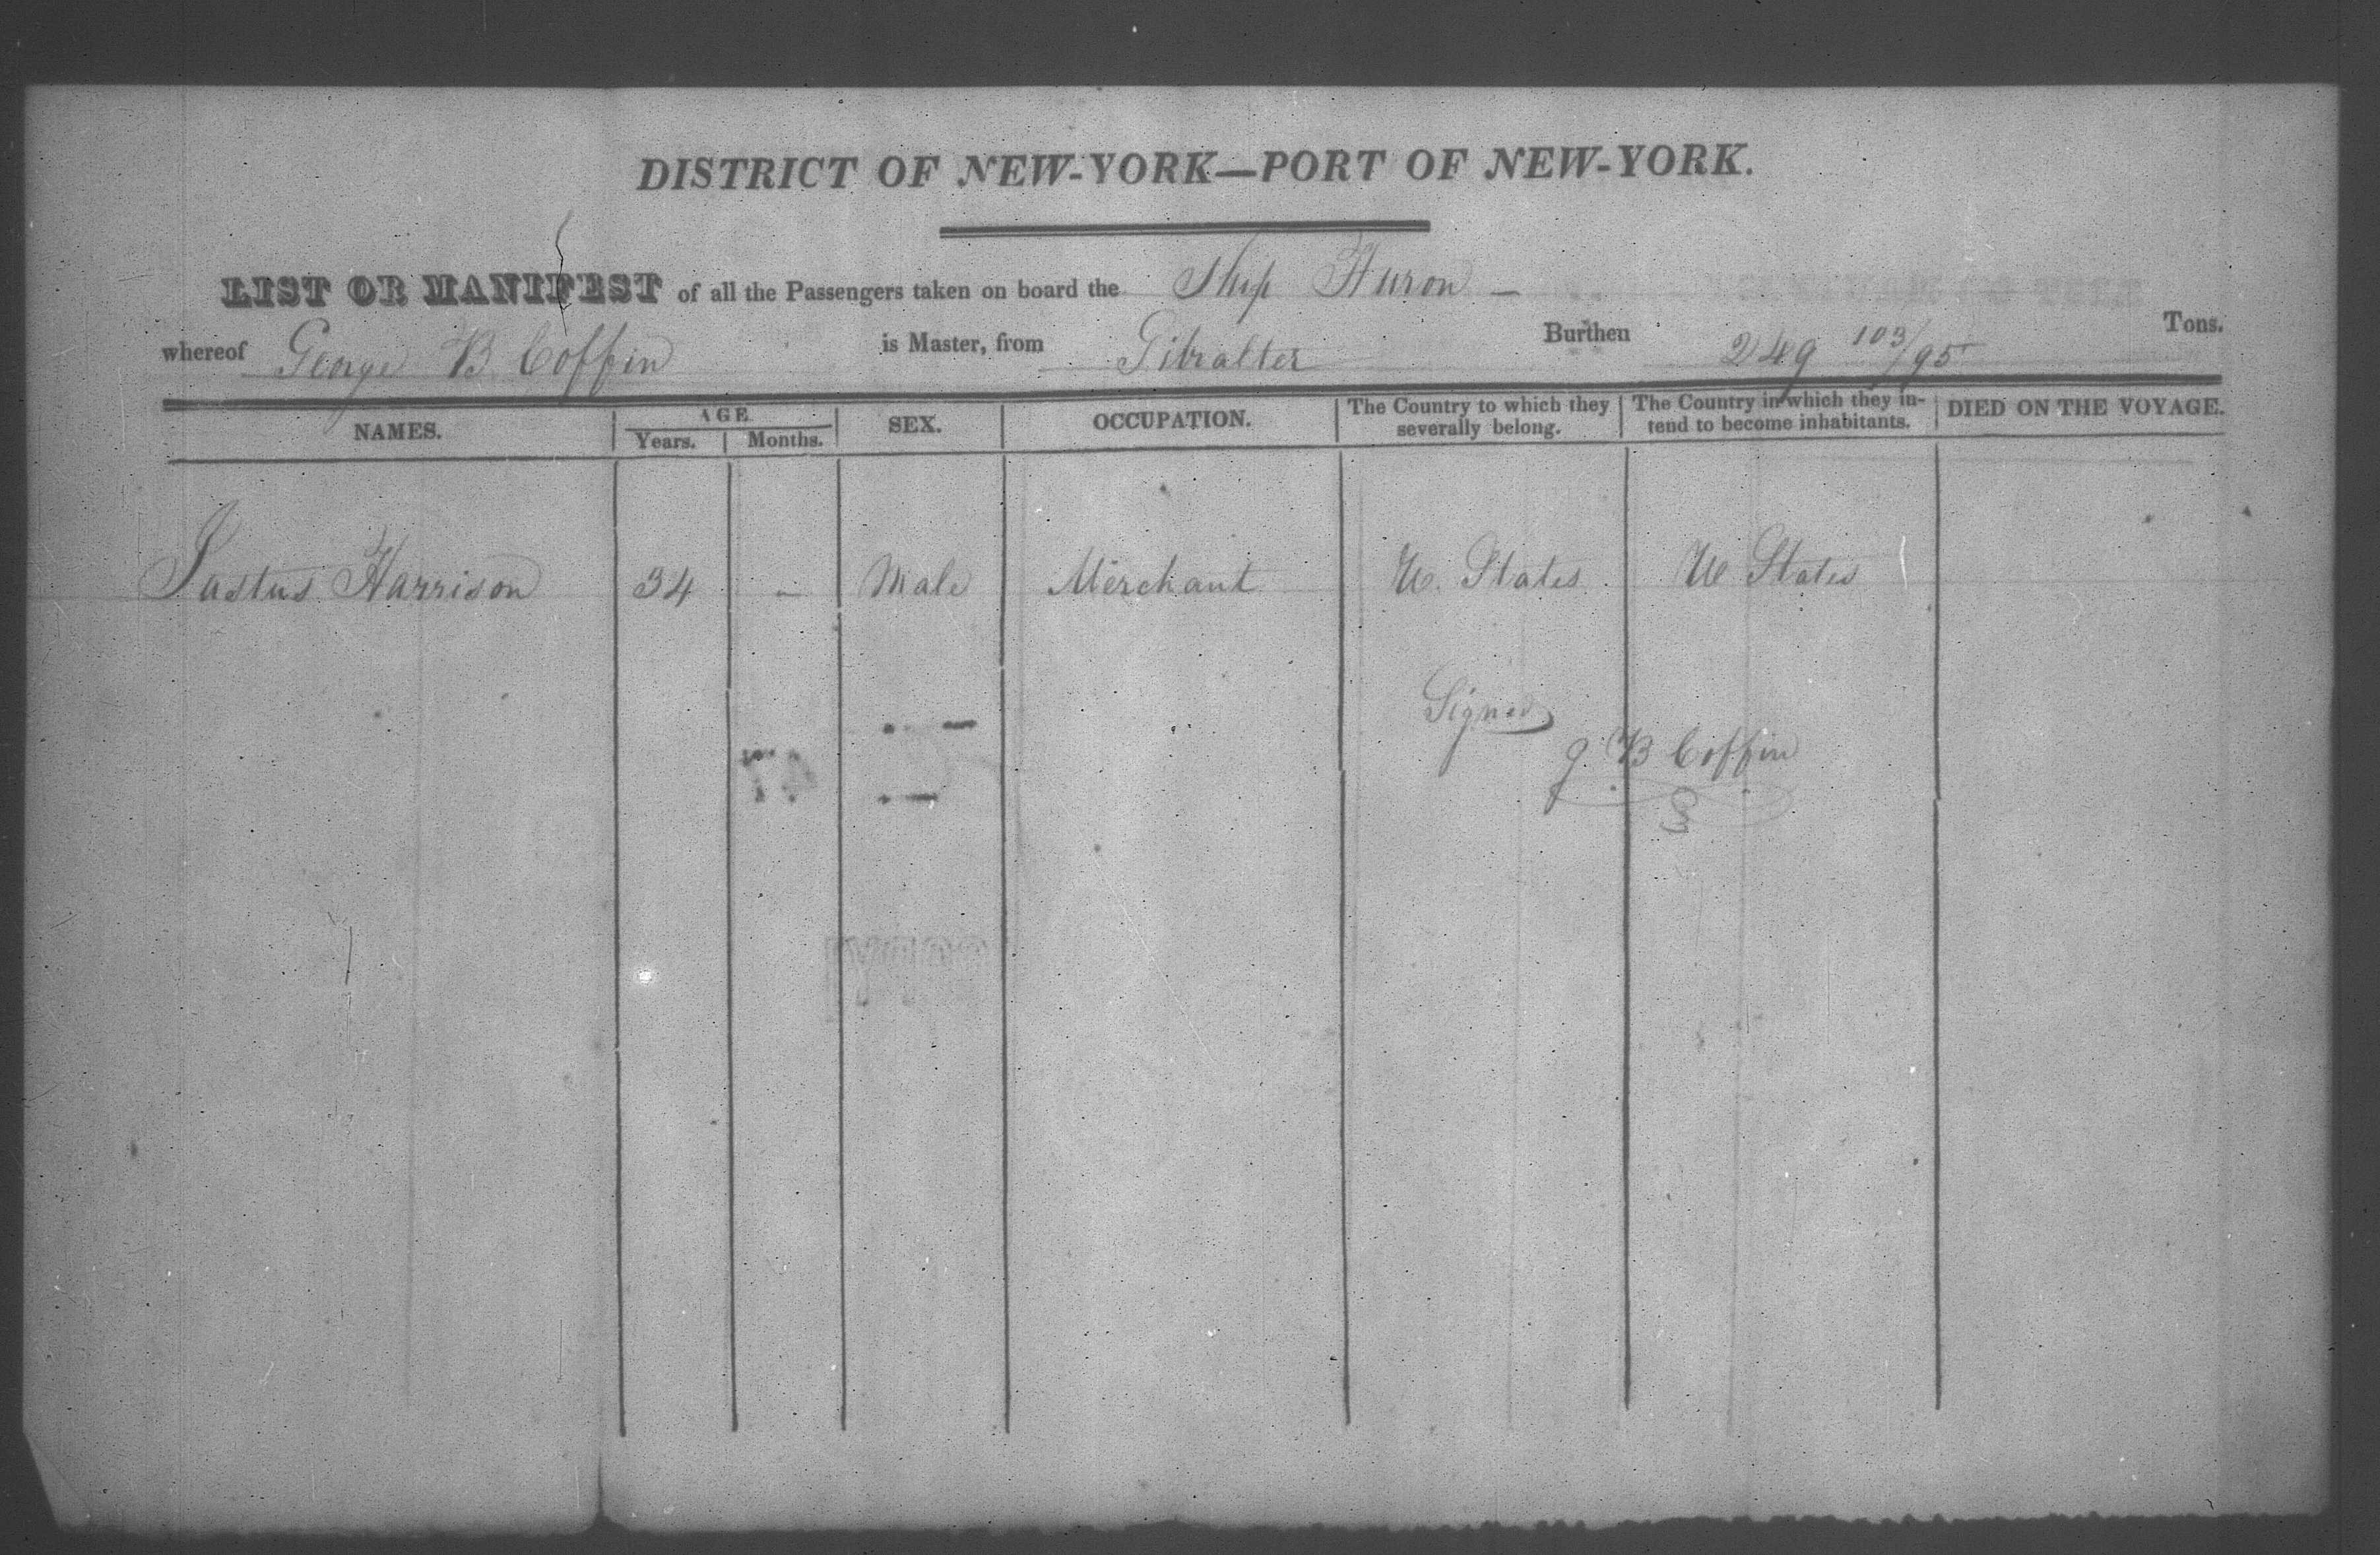 DISTRICT OF NEW-YORK—PORT OF NEW-YORK.
LIST OR MANIFEST of all the Passengers taken on board the Ship Huron —
whereof George B Coffin is Master, from Gibralter Burthen 249 103/95 Tons.
NAMES. AGE SEX. OCCUPATION. The Country to which they severally belong. The Country in which they in-tend to become inhabitants. DIED ON THE VOYAGE.
Years. Months.
Justus Harrison 34 – Male Merchant U. States U States
Signed
G. B Coffin